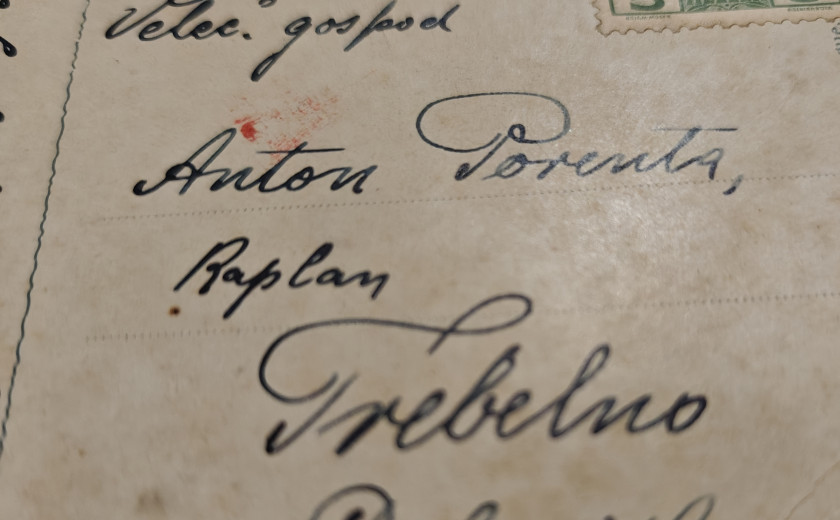 Veleč. gospod
Anton Porenta,
Kaplan
Trebelno